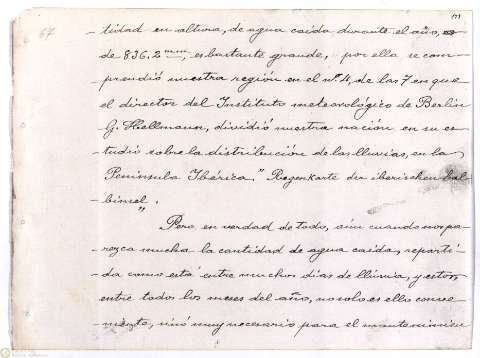 67
-tidad en altura, de agua caida durante el año,
-de 836.2 mm, es bastante grande, por ella se com-
-prendió nuestra región en el nº 4, de las 7 en que
-el director del Instituto meteorológico de Berlin
-G. Hellmann, dividió nuestra nación en su es-
-tudio sobre la distribución de las lluvias, en la
-Peninsula Ibérica." Regenkarte der iberischen hal-
-binsel."
Pero en verdad de todo, aún cuando nos pa-
-rezca mucha la cantidad de agua caida, reparti-
-da como está entre muchos dias de lluvia, y estos,
-entre todos los meses del año, no solo es ello conve-
-niente, sinó muy necesario para el mantenimien